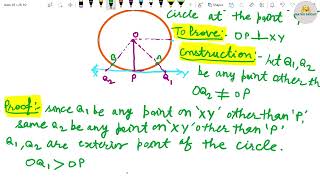 circle at the point
To Prove:- OP⊥XY
Construction:- let Q1, Q2
be any point other th
OQ2 ≠ OP
O
R
Q2 P Q1
Proof: since Q1 be any point on 'XY' other than 'P',
same Q2 be any point on 'XY' other than 'P'
Q1, Q2 are exterior point of the circle.
OQ1 > OP